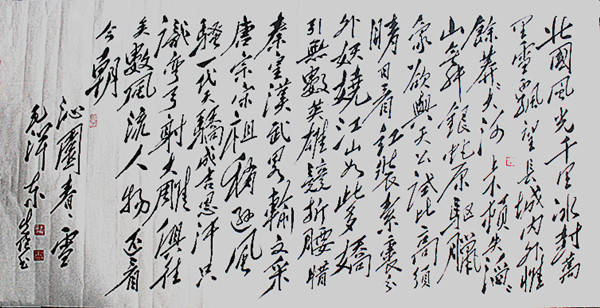 北國風光千里冰封萬
里雪飄望長城內外惟
餘莽莽大河上下頓失滔滔
山舞銀蛇原馳臘
象欲與天公試比高須
晴日看紅裝素裹分
外妖嬈江山如此多嬌
引無數英雄競折腰惜
秦皇漢武略輸文采
唐宗宋祖稍遜風
騷一代天驕成吉思汗只
識彎弓射大雕俱往
矣數風流人物還看
今朝
沁園春雪
毛澤東